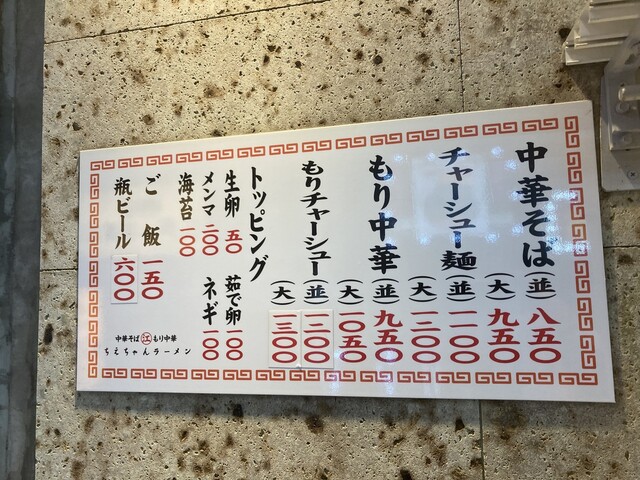 中華そば(並)八五〇
(大)九五〇
チャーシュー麺(並)一一〇〇
(大)一二〇〇
もり中華(並)九五〇
(大)一〇五〇
もりチャーシュー(並)一二〇〇
(大)一三〇〇
トッピング
生卵 五〇
茹で卵 一〇〇
メンマ 二〇〇
ネギ 一〇〇
海苔 一〇〇
ご飯 一五〇
瓶ビール 六〇〇
中華そば 江 もり中華
ちえちゃんラーメン